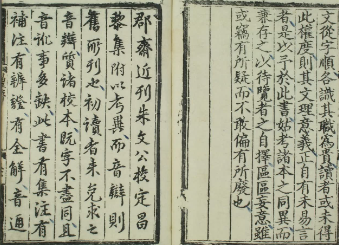 文從字順各識其職為貴讀者或未得
此權度則其文理意義正自有未易言
者是以予於此書姑考諸本之同異而
兼存之以待覽者之自擇區區妄意雖
或竊有所疑而不敢偏有所廢也
郡齋近刊朱文公校定昌
黎集附以考異而音辯則
舊所刊也初讀者未免求之
音辯質諸校本旣字不盡同且
音訛事多缺此書有集注有
補注有辨證有全解音通